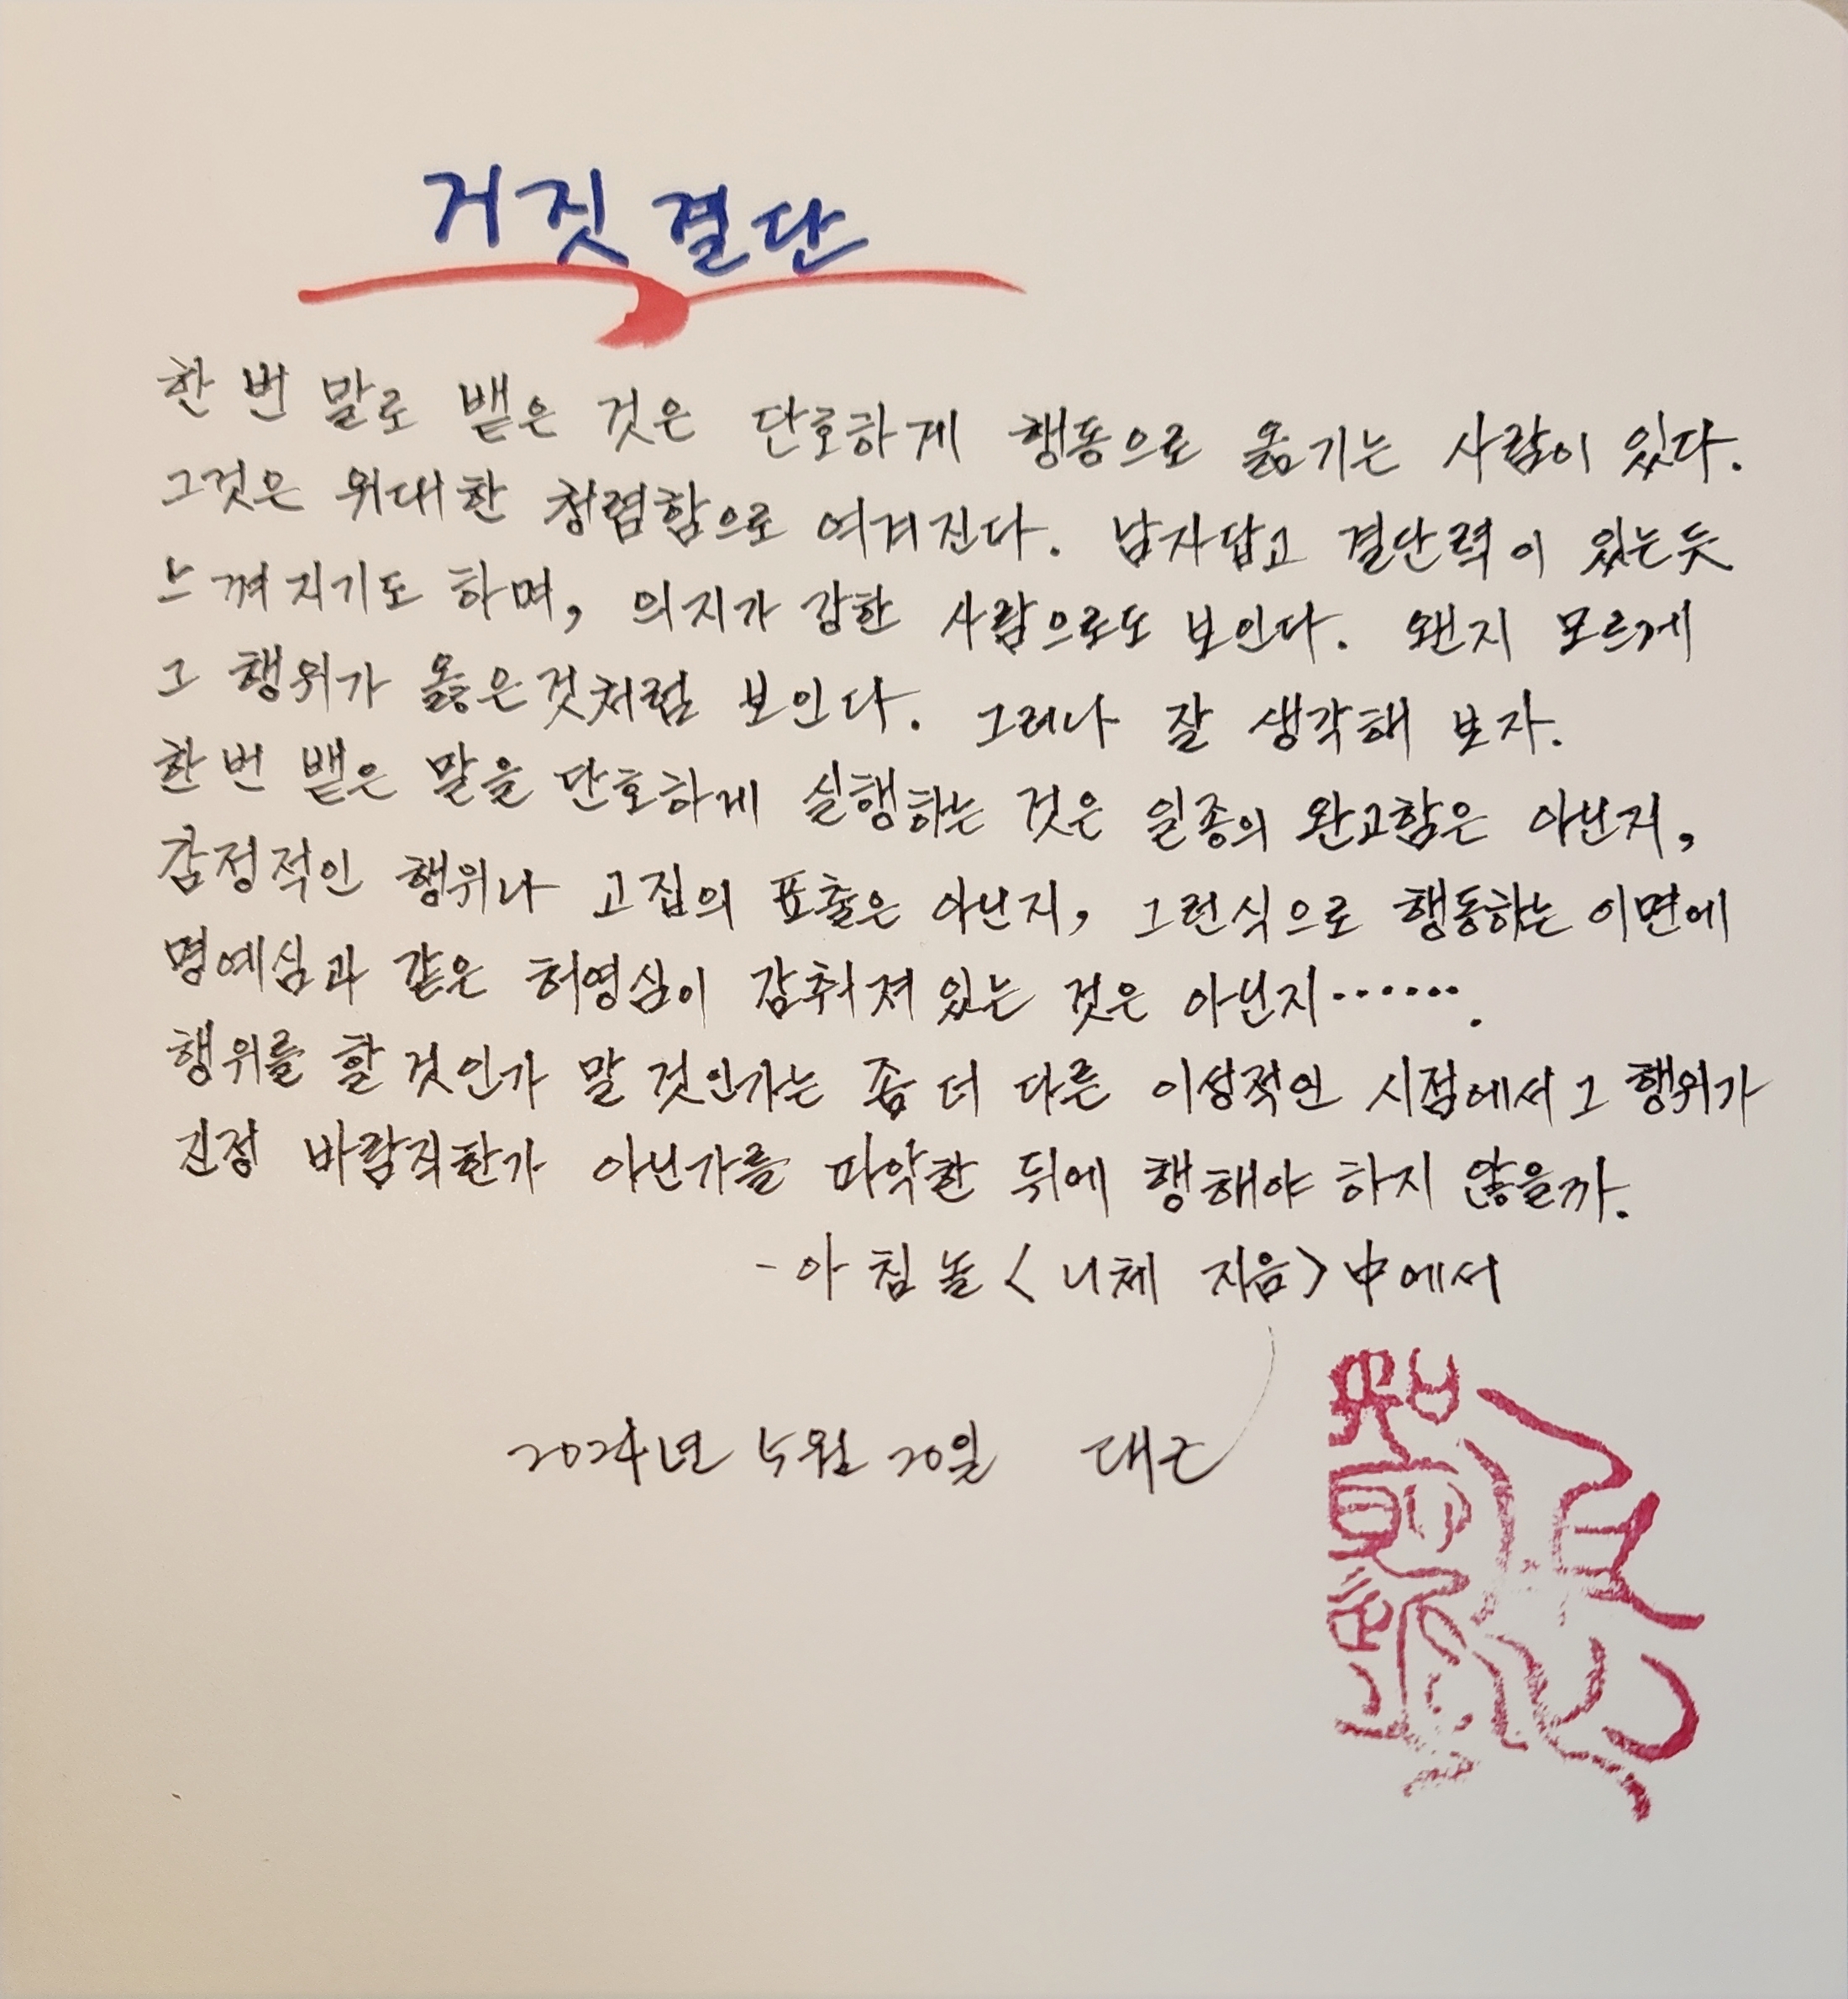 거짓 결단
한 번 말로 뱉은 것은 단호하게 행동으로 옮기는 사람이 있다.
그것은 위대한 청렴함으로 여겨진다. 남자답고 결단력이 있는듯
느껴지기도 하며, 의지가 강한 사람으로도 보인다. 왠지 모르게
그 행위가 옳은것처럼 보인다. 그러나 잘 생각해 보자.
한번 뱉은 말을 단호하게 실행하는 것은 일종의 완고함은 아닌지,
감정적인 행위나 고집의 표출은 아닌지, 그런식으로 행동하는 이면에
명예심과 같은 허영심이 감춰져 있는 것은 아닌지…….
행위를 할 것인가 말 것인가는 좀 더 다른 이성적인 시점에서 그 행위가
진정 바람직한가 아닌가를 파악한 뒤에 행해야 하지 않을까.
- 아침놀 <니체 지음> 中에서
2024년 5월 20일 대근